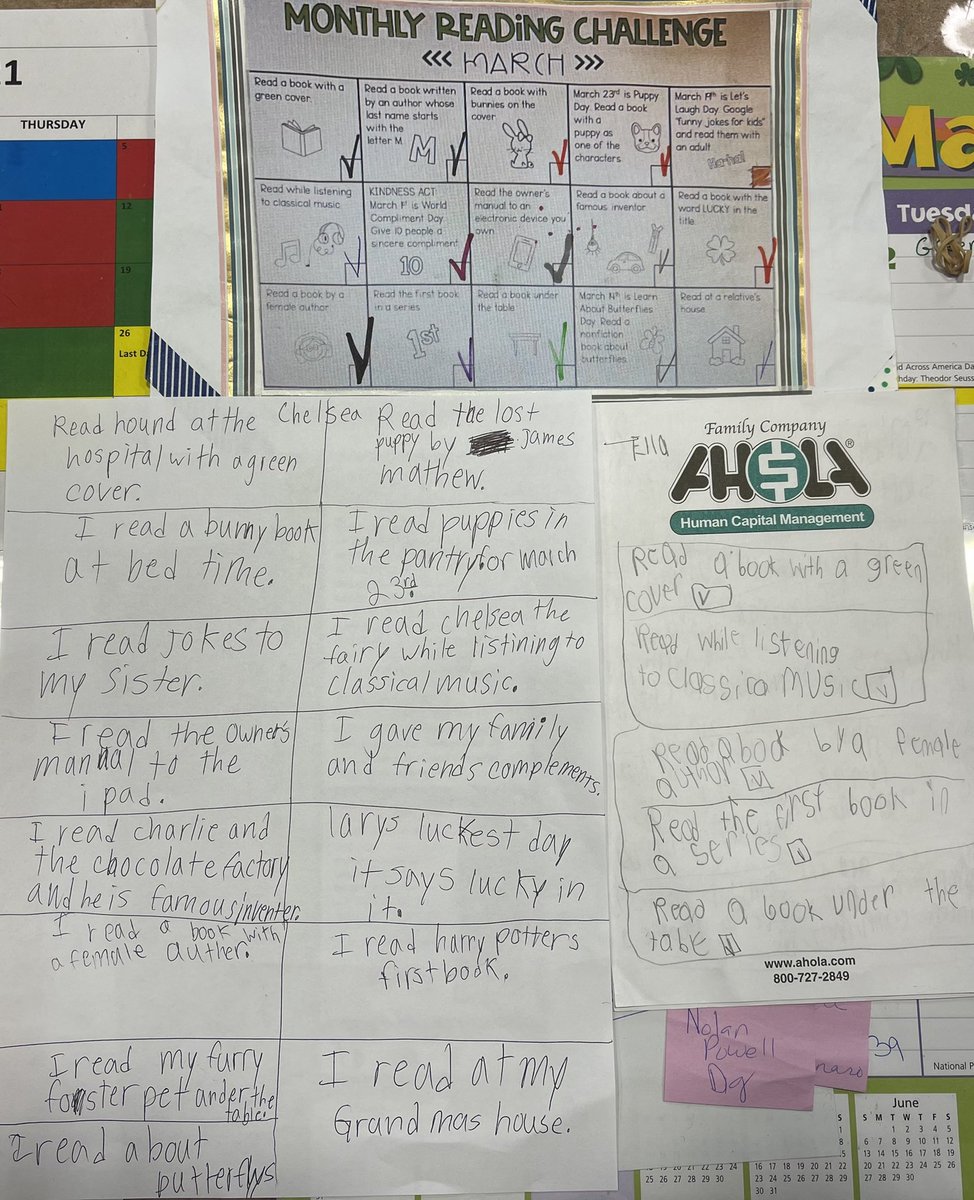 .1
THURSDAY
5
12
19
26
Last D
MONTHLY READING CHALLENGE
<<< MARCH >>>
Read a book with a
green cover.
Read a book written
by an author whose
last name starts
with the
letter M
M
Read a book with
bunnies on the
cover
March 23rd is Puppy
Day. Read a book
with a
puppy as
one of the
characters
March 19th is Let's
Laugh Day. Google
"funny jokes for kids"
and read them with
an adult
Ha-ha!
Read while listening
to classical music
KINDNESS ACT
March 1st is World
Compliment Day
Give 10 people a
sincere compliment
10
Read the owner's
manual to an
electronic device you
own
Read a book about a
famous inventor
Read a book with the
word LUCKY in the
title
Read a book by a
female author
Read the first book
in a series
1st
Read a book under
the table
March 14th is Learn
About Butterflies
Day. Read a
nonfiction
book about
butterflies
Read at a relative's
house.
Ma
Tuesd
2
nd Across America Da
hday: Theodor Seuss
Chelsea
Read hound at the
hospital with a green
cover.
Read the lost
puppy by James
mathew.
I read a bunny book
at bed time.
I read puppies in
the pantry for march
23rd.
I read jokes to
my sister.
I read chelsea the
fairy while listining to
classical music.
I read the owner's
manual to the
ipad.
I gave my family
and friends complements.
I read charlie and
the chocolate factory
and he is famous inventer.
larys luckest day
it says lucky in
it.
I read a book with
a female auther.
I read harry potters
first book.
I read my furry
foster pet under the
table.
I read at my
Grandmas house.
I read about
butterflys
Ella
Family Company
AHOLA®
Human Capital Management
Read a book with a green
cover
Read while listening
to classica music
Read a book by a female
author
Read the first book in
a series
Read a book under the
table
www.ahola.com
800-727-2849
Nolan
Powell
Dg
39
National P
June
S M T W T F S
1 2 3 4 5
6 7 8 9 10 11 12
13 14 15 16 17 18 19
20 21 22 23 24 25 26
27 28 29 30
S
1
8
15
22
29
25 26 27 28 29 30
30 31